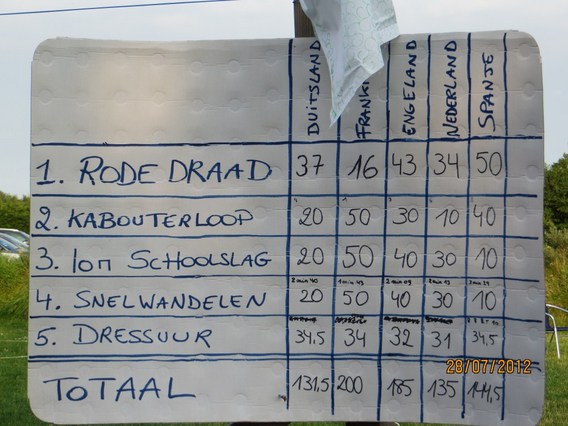 DUITSLAND FRANK ENGELAND NEDERLAND SPANJE
1. RODE DRAAD 37 16 43 34 50
2. KABOUTERLOOP 20 50 30 10 40
3. 10m SCHOOLSLAG 20 50 40 30 10
4. SNELWANDELEN 20 50 40 30 10
5. DRESSUUR 34,5 34 32 31 34,5
TOTAAL 131,5 200 185 135 144,5
28/07/2012